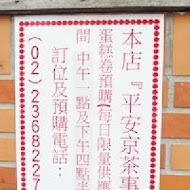 本店『平安京茶事
蛋糕券預購每日限量供應
間中午一點及下午四點半
訂位及預購電話：
(02)2368227